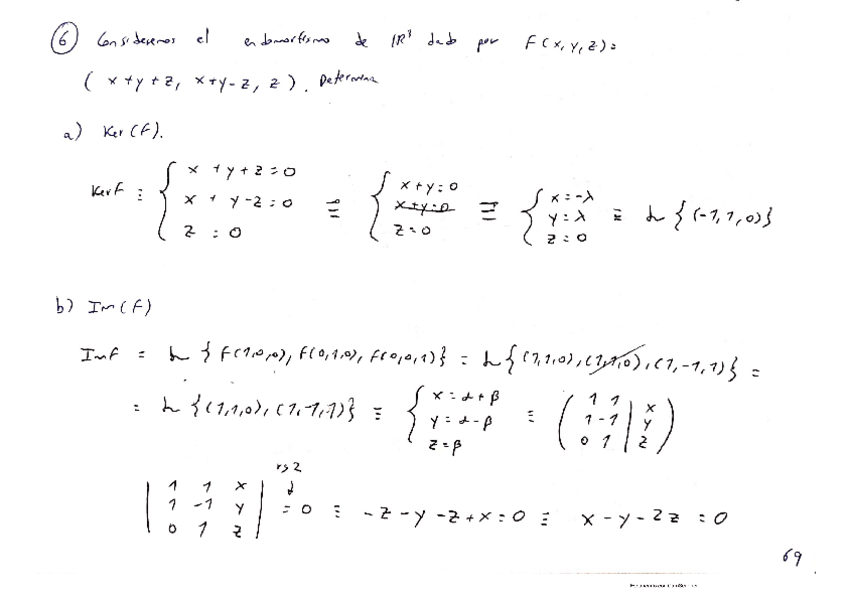 6 Consideremos el endomorfismo de IR³ dado por F(x, y, z) =
(x+y+z, x+y-z, z). Determinar
a) Ker(F).
KerF ≡ { x+y+z=0 ; x+y-z=0 ; z=0 ≡ { x+y=0 ; x+y=0 ; z=0 ≡ { x=-λ ; y=λ ; z=0 ≡ L{(-1,1,0)}
b) Im(F)
ImF = L{F(1,0,0), F(0,1,0), F(0,0,1)} = L{(1,1,0), (1,1,0), (1,-1,1)} =
= L{(1,1,0), (1,-1,1)} ≡ { x=α+β ; y=α-β ; z=β ≡ ( 1 1 | x ; 1 -1 | y ; 0 1 | z )
rg 2
| 1 1 x ; 1 -1 y ; 0 1 z | = 0 ≡ -z-y-z+x=0 ≡ x-y-2z=0
69